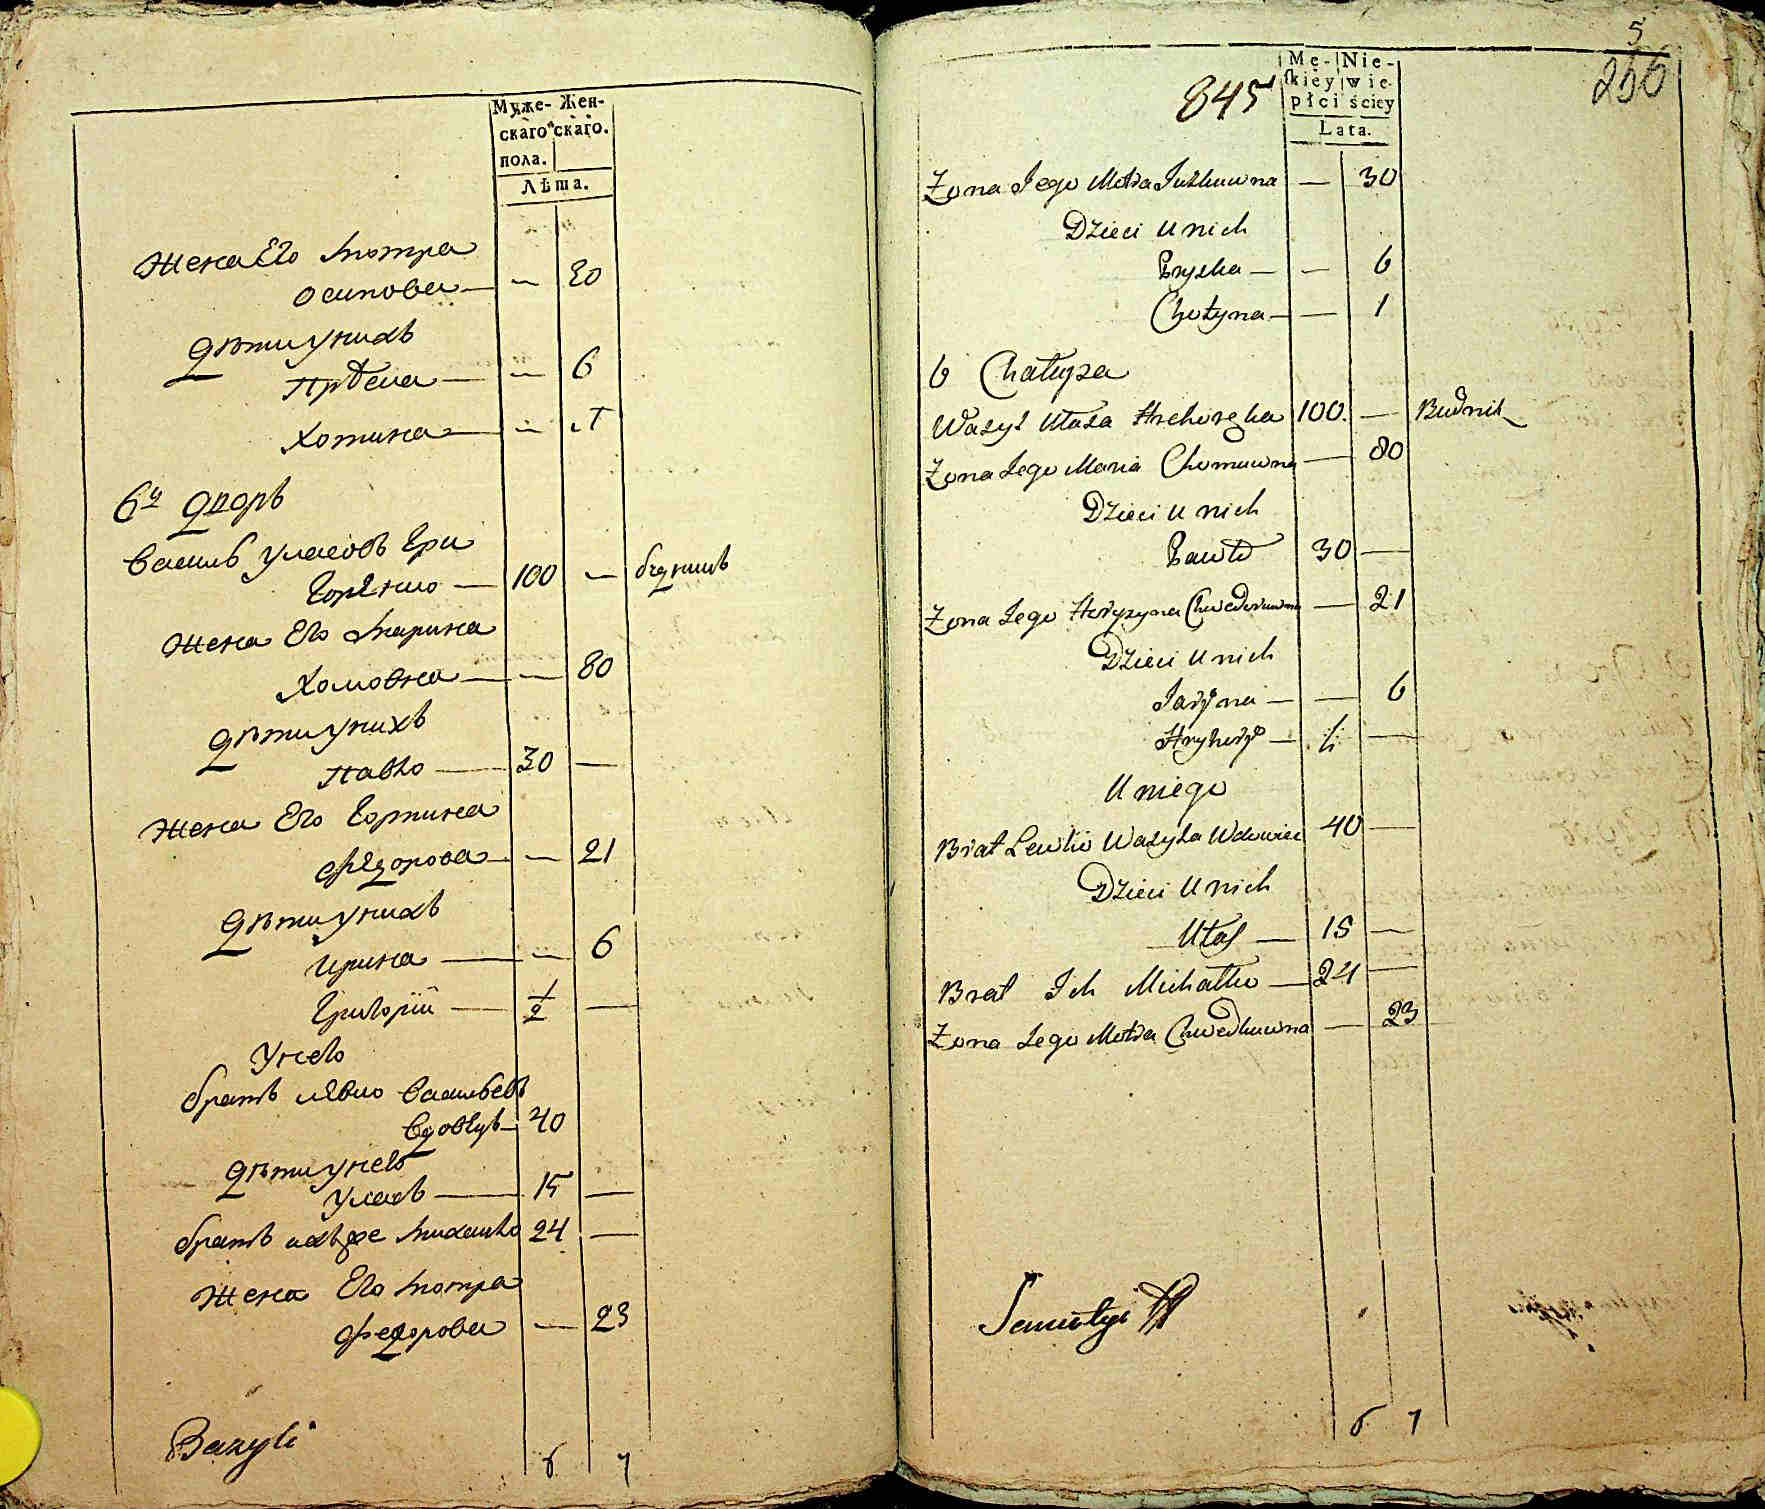 Муже- Жен-
скаго скаго.
пола.
Лѣта.
Жена Его Мотра
Осипова — — 30
Дѣти у нихъ
— — 6
Хотина — — 1
6й Дворъ
Василь Уласовъ Гри
100 — будникъ
Жена Его Марина
Хомовна — — 80
Дѣти у нихъ
Павло — 30 —
Жена Его Горпина
Федорова — — 21
Дѣти у нихъ
Ирина — — 6
Григорій — 1/2 —
У него
братъ Левко Васильевъ
вдовецъ — 40
Дѣти у него
Уласъ — 15 —
братъ ихъ же Михалко 24 —
Жена Его Мотра
Федорова — 23
Bazyli
6 7
5
256
845
Mę- Nie-
skiey wie-
płci ściey
Lata.
Żona Jego Motra — 30
Dzieci u nich
— — 6
Chotyna — — 1
6 Chałupa
Wasyl Ułasa 100. — Budnik
Żona Jego Maria Chomowna — 80
Dzieci u nich
Pawło 30 —
Żona Jego Horpyna Chwedorowna — 21
Dzieci u nich
Jaryna — — 6
Hryhory — ½ —
U niego
Brat Lewko Wasyla Wdowiec 40 —
Dzieci u nich
Ułas — 15 —
Brat Ich Michałko — 24 —
Żona Jego Motra Chwedkowna — 23
6 7